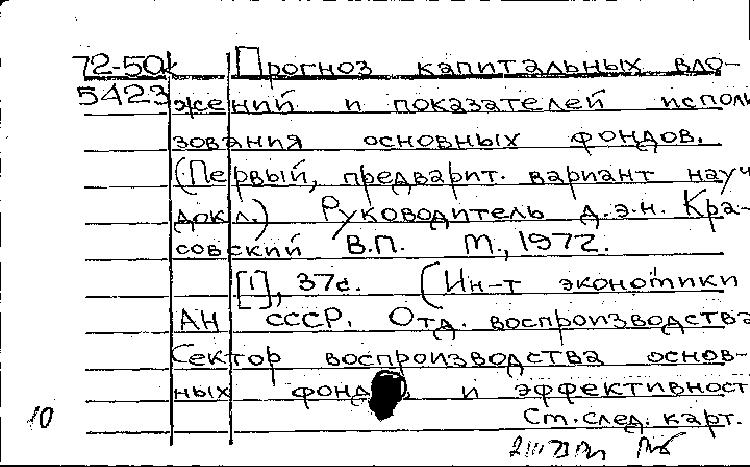 72-50k Прогноз капитальных вло-
5423 жений и показателей исполь
зования основных фондов.
(Первый, предварит. вариант науч
докл.) Руководитель д.э.н. Кра-
совский В.П. М., 1972.
[1], 37с. (Ин-т экономики
АН СССР. Отд. воспроизводства
Сектор воспроизводства основ-
ных фондов и эффективност
10 См. след. карт.